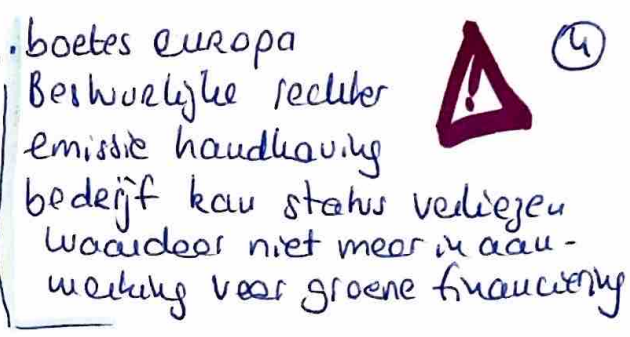 . boetes europa
Bestuurlijke rechter
emissie handhaving
bedrijf kan status verliezen
waardoor niet meer in aan-
merking voor groene financiering
4
!